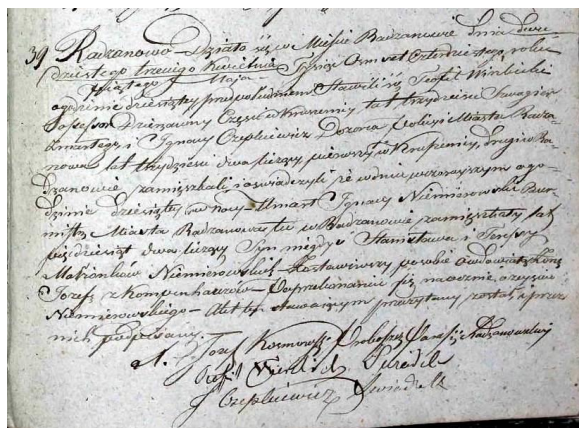 39 Radzanowo – Działo się w Mieście Radzanowie dnia dwu-
dziestego trzeciego Kwietnia Tysiąc Ośmset Czterdziestego roku
piątego Maja
o godzinie dziesiątej przed południem Stawili się Teofil Wirbicki
Possessor Dzierżawny Części w lat trzydzieści Szwagier
Zmarłego, i Ignacy Czeplicwicz Dozorca Policyi Miasta Radza-
nowa lat trzydzieści dwa liczący pierwszy w Krępienicy, drugi w Ra-
dzanowie zamieszkali, i oświadczyli że w dniu wczorajszym o go-
dzinie dziesiątej w nocy – Umarł Ignacy Niemierowski Bur-
mistrz Miasta Radzanowa tu w Radzanowie zamieszkały lat
pięćdziesiąt dwa liczący Syn niegdy Stanisława i Teressy
Małżonków Niemierowskich – Zostawiwszy po sobie owdowiałą Żonę
Józefę z – Po przekonaniu się naocznie o zejściu
Niemierowskiego – Akt ten stawającym przeczytany został i przez
nich podpisany.
X. Józef Kosmowski Proboszcz Parafii Radzanowskiej
Teofil Wirbicki
Czeplicwicz Świadek